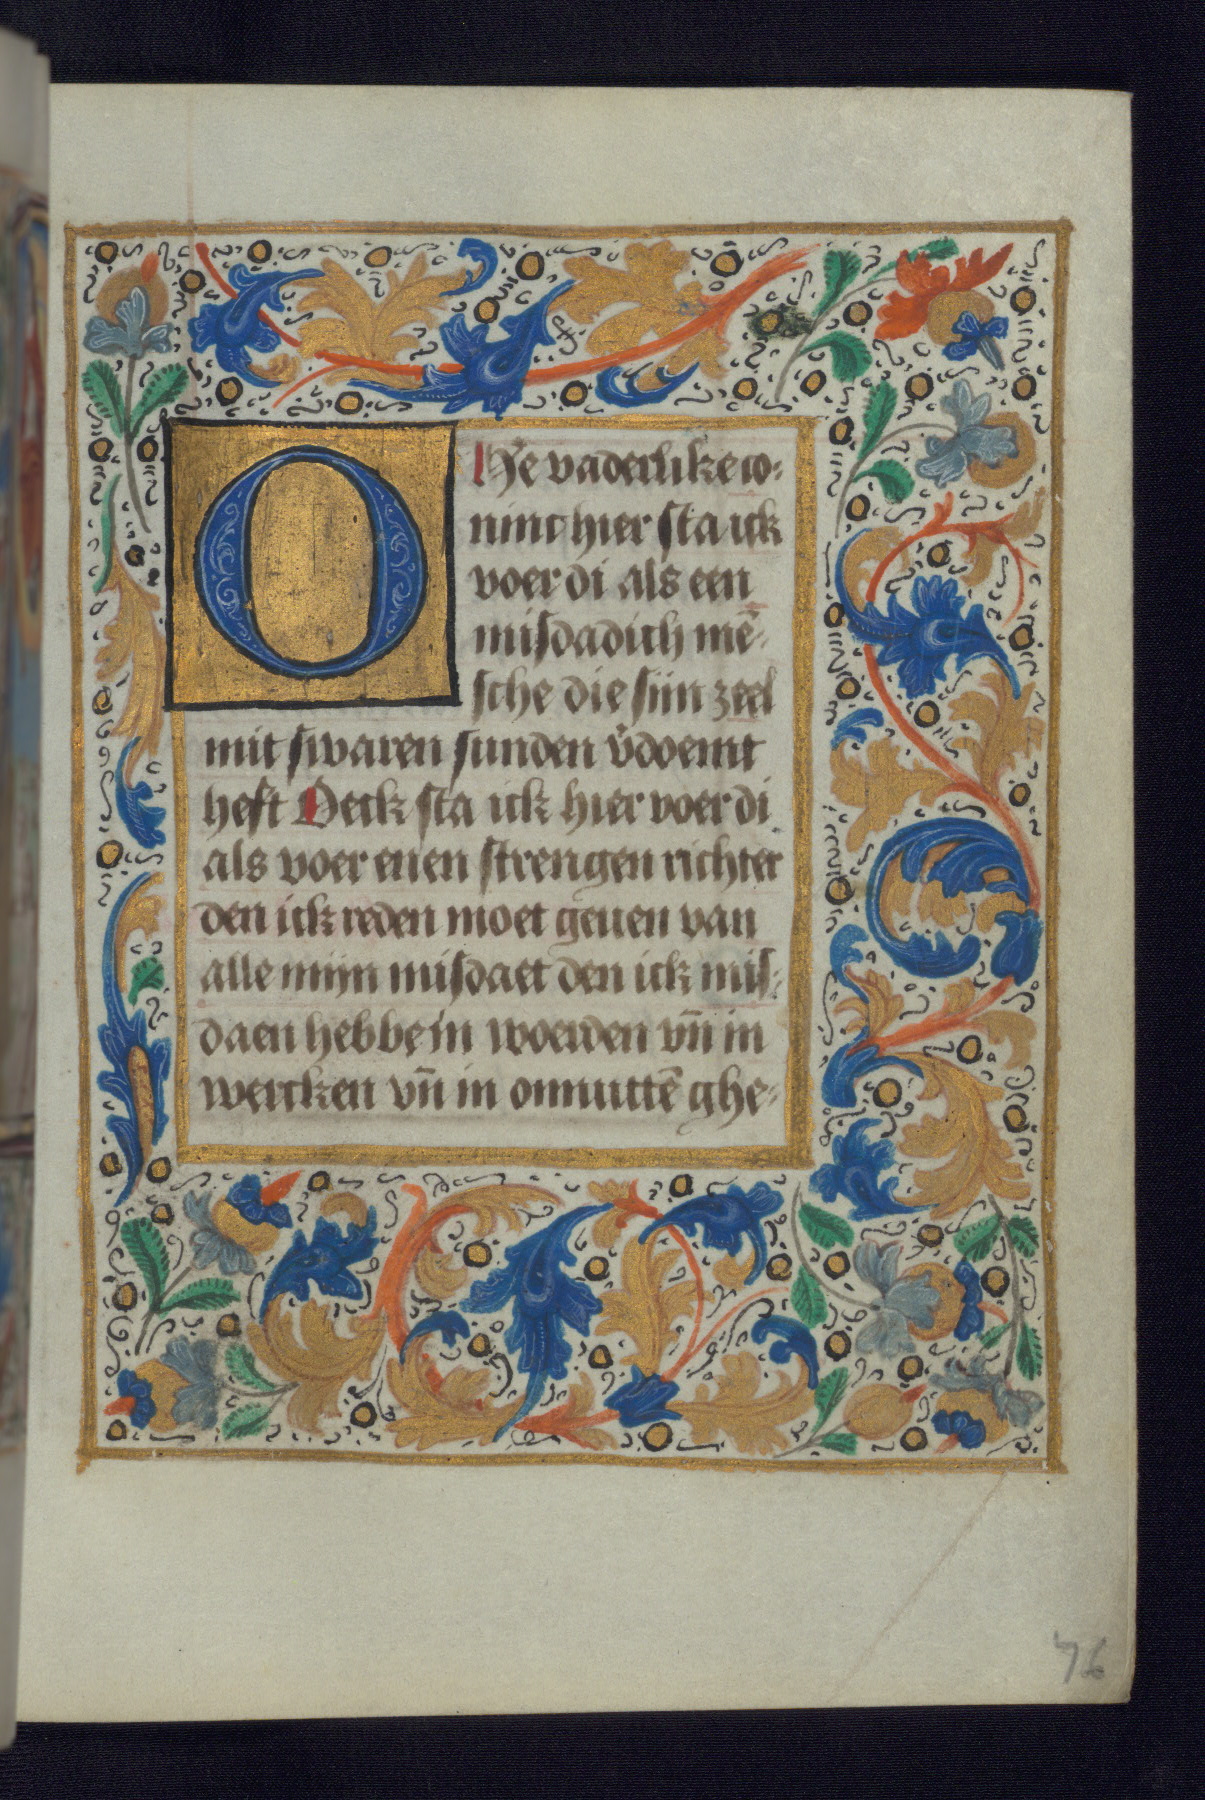 O Ihē vaderlike co-
ninc hier sta ick
voer di als een
misdadich mē-
sche die sijn zeel
mit swaren sunden v̄doemt
heft Oeck sta ick hier voer di
als voer enen strengen richter
den ick reden moet geuen van
alle mijn misdaet den ick mis-
daen hebbe in woerden vn̄ in
wercken vn̄ in onnuttē ghe-
76